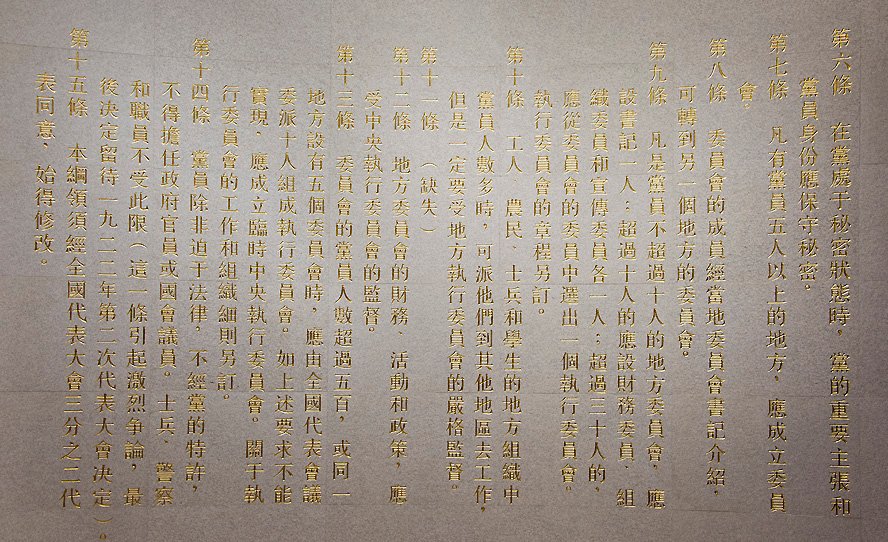 第六條　在黨處于秘密狀態時，黨的重要主張和
黨員身份應保守秘密。
第七條　凡有黨員五人以上的地方，應成立委員
會。
第八條　委員會的成員經當地委員會書記介紹，
可轉到另一個地方的委員會。
第九條　凡是黨員不超過十人的地方委員會，應
設書記一人；超過十人的應設財務委員、組
織委員和宣傳委員各一人；超過三十人的，
應從委員會的委員中選出一個執行委員會。
執行委員會的章程另訂。
第十條　工人、農民、士兵和學生的地方組織中
黨員人數多時，可派他們到其他地區去工作，
但是一定要受地方執行委員會的嚴格監督。
第十一條　（缺失）
第十二條　地方委員會的財務、活動和政策，應
受中央執行委員會的監督。
第十三條　委員會的黨員人數超過五百，或同一
地方設有五個委員會時，應由全國代表會議
委派十人組成執行委員會。如上述要求不能
實現，應成立臨時中央執行委員會。關于執
行委員會的工作和組織細則另訂。
第十四條　黨員除非迫于法律，不經黨的特許，
不得擔任政府官員或國會議員。士兵、警察
和職員不受此限（這一條引起激烈爭論，最
後決定留待一九二二年第二次代表大會決定）。
第十五條　本綱領須經全國代表大會三分之二代
表同意，始得修改。